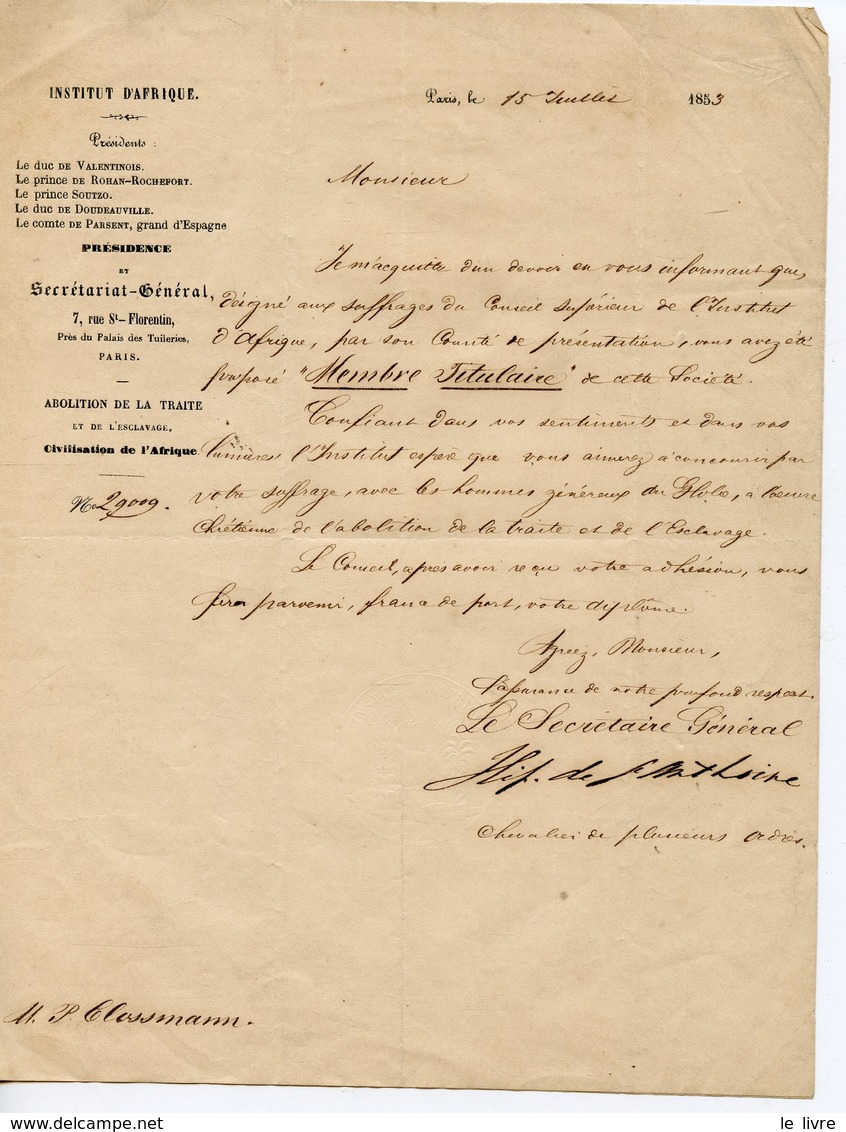 INSTITUT D'AFRIQUE.
Présidents :
Le duc DE VALENTINOIS.
Le prince DE ROHAN-ROCHEFORT.
Le prince SOUTZO.
Le duc DE DOUDEAUVILLE.
Le comte DE PARSENT, grand d'Espagne
PRÉSIDENCE
ET
Secrétariat-Général,
7, rue St-Florentin,
Près du Palais des Tuileries,
PARIS.
ABOLITION DE LA TRAITE
ET DE L'ESCLAVAGE,
Civilisation de l'Afrique.
No 29009.
Paris, le 15 Juillet 1853
Monsieur
Je m'acquitte d'un devoir en vous informant que,
désigné aux suffrages du Conseil Supérieur de l'Institut
d'Afrique, par son Comité de présentation, vous avez été
proposé "Membre Titulaire" de cette Société.
Confiant dans vos sentiments et dans vos
lumières l'Institut espère que vous aimerez à concourir par
votre suffrage, avec les hommes généreux du Globe, à l'oeuvre
Chrétienne de l'abolition de la traite et de l'Esclavage.
Le Conseil, après avoir reçu votre adhésion, vous
fera parvenir, franc de port, votre diplôme.
Agréez, Monsieur,
l'assurance de notre profond respect.
Le Secrétaire Général
Hip. de St Anthoine
Chevalier de plusieurs ordres.
M. P. Clossmann.
le livre